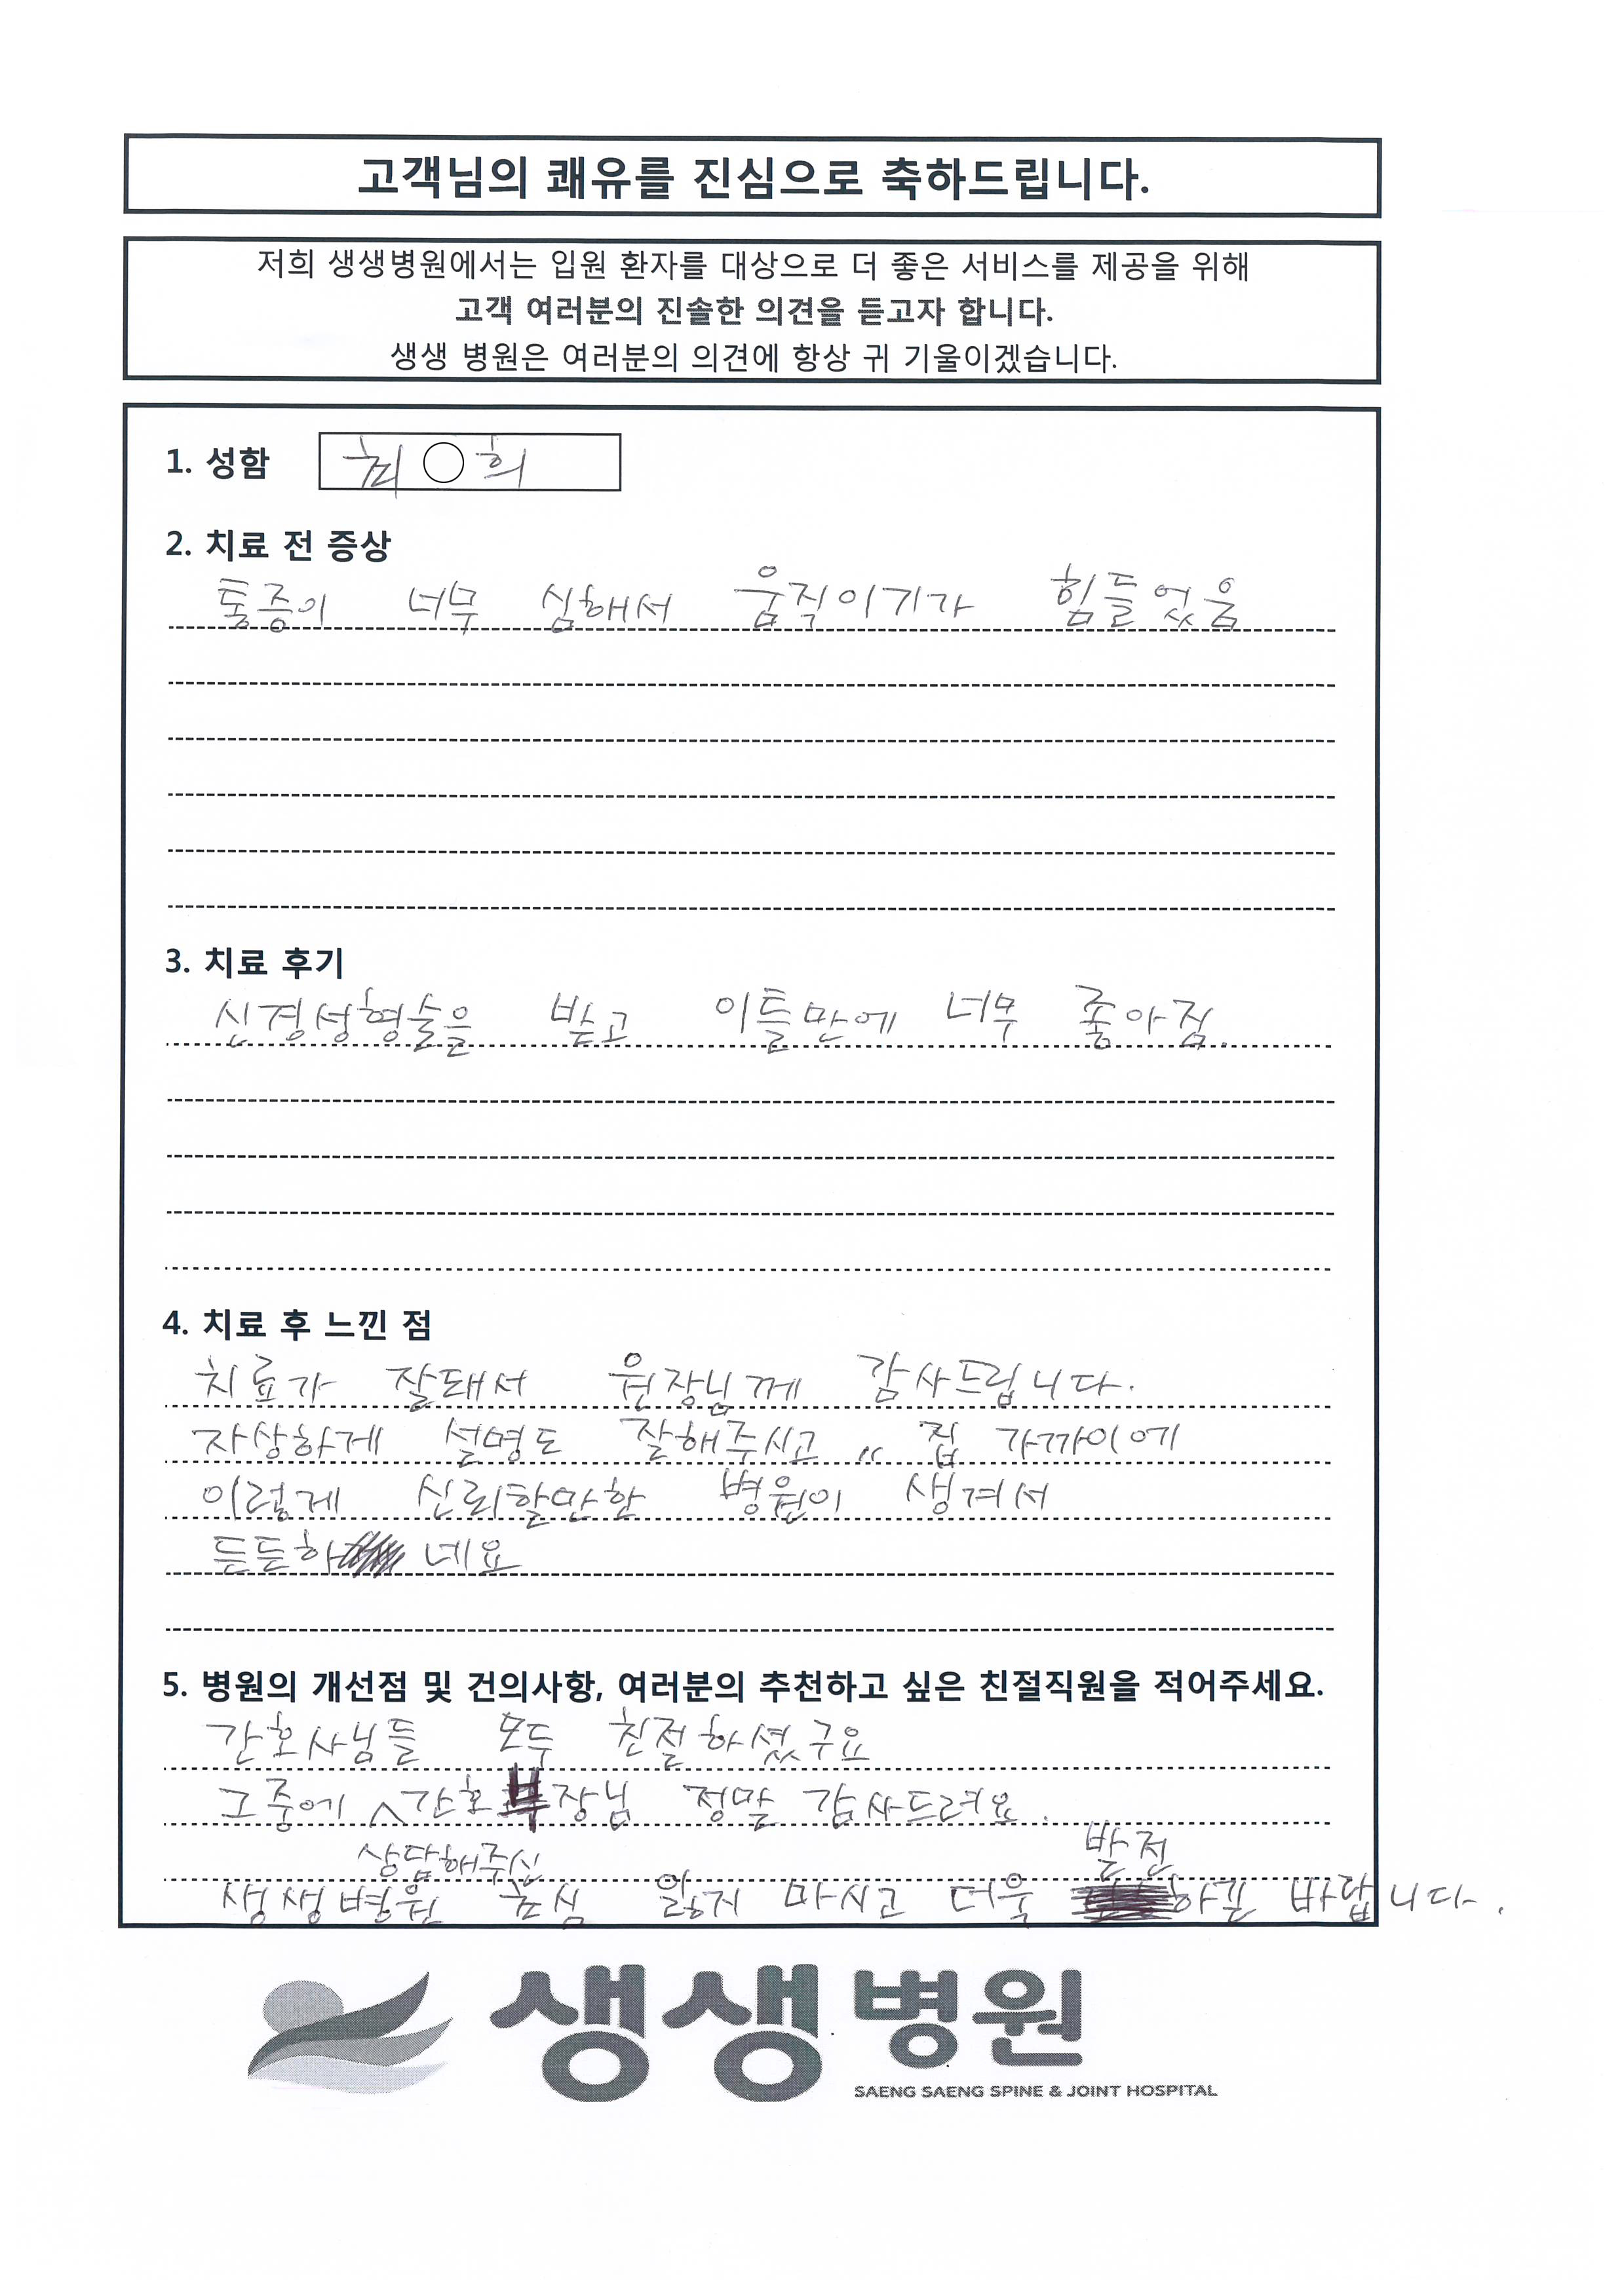 고객님의 쾌유를 진심으로 축하드립니다.
저희 생생병원에서는 입원 환자를 대상으로 더 좋은 서비스를 제공을 위해
고객 여러분의 진솔한 의견을 듣고자 합니다.
생생 병원은 여러분의 의견에 항상 귀 기울이겠습니다.
1. 성함 최○희
2. 치료 전 증상
통증이 너무 심해서 움직이기가 힘들었음
3. 치료 후기
신경성형술을 받고 이틀만에 너무 좋아짐.
4. 치료 후 느낀 점
치료가 잘돼서 원장님께 감사드립니다.
자상하게 설명도 잘해주시고 〃 집 가까이에
이렇게 신뢰할만한 병원이 생겨서
든든하네요
5. 병원의 개선점 및 건의사항, 여러분의 추천하고 싶은 친절직원을 적어주세요.
간호사님들 모두 친절하셨구요
그중에 ^간호부장님 정말 감사드려요.
상담해주신
발전
생생병원 초심 잃지 마시고 더욱 하길 바랍니다.
생생병원
SAENG SAENG SPINE & JOINT HOSPITAL